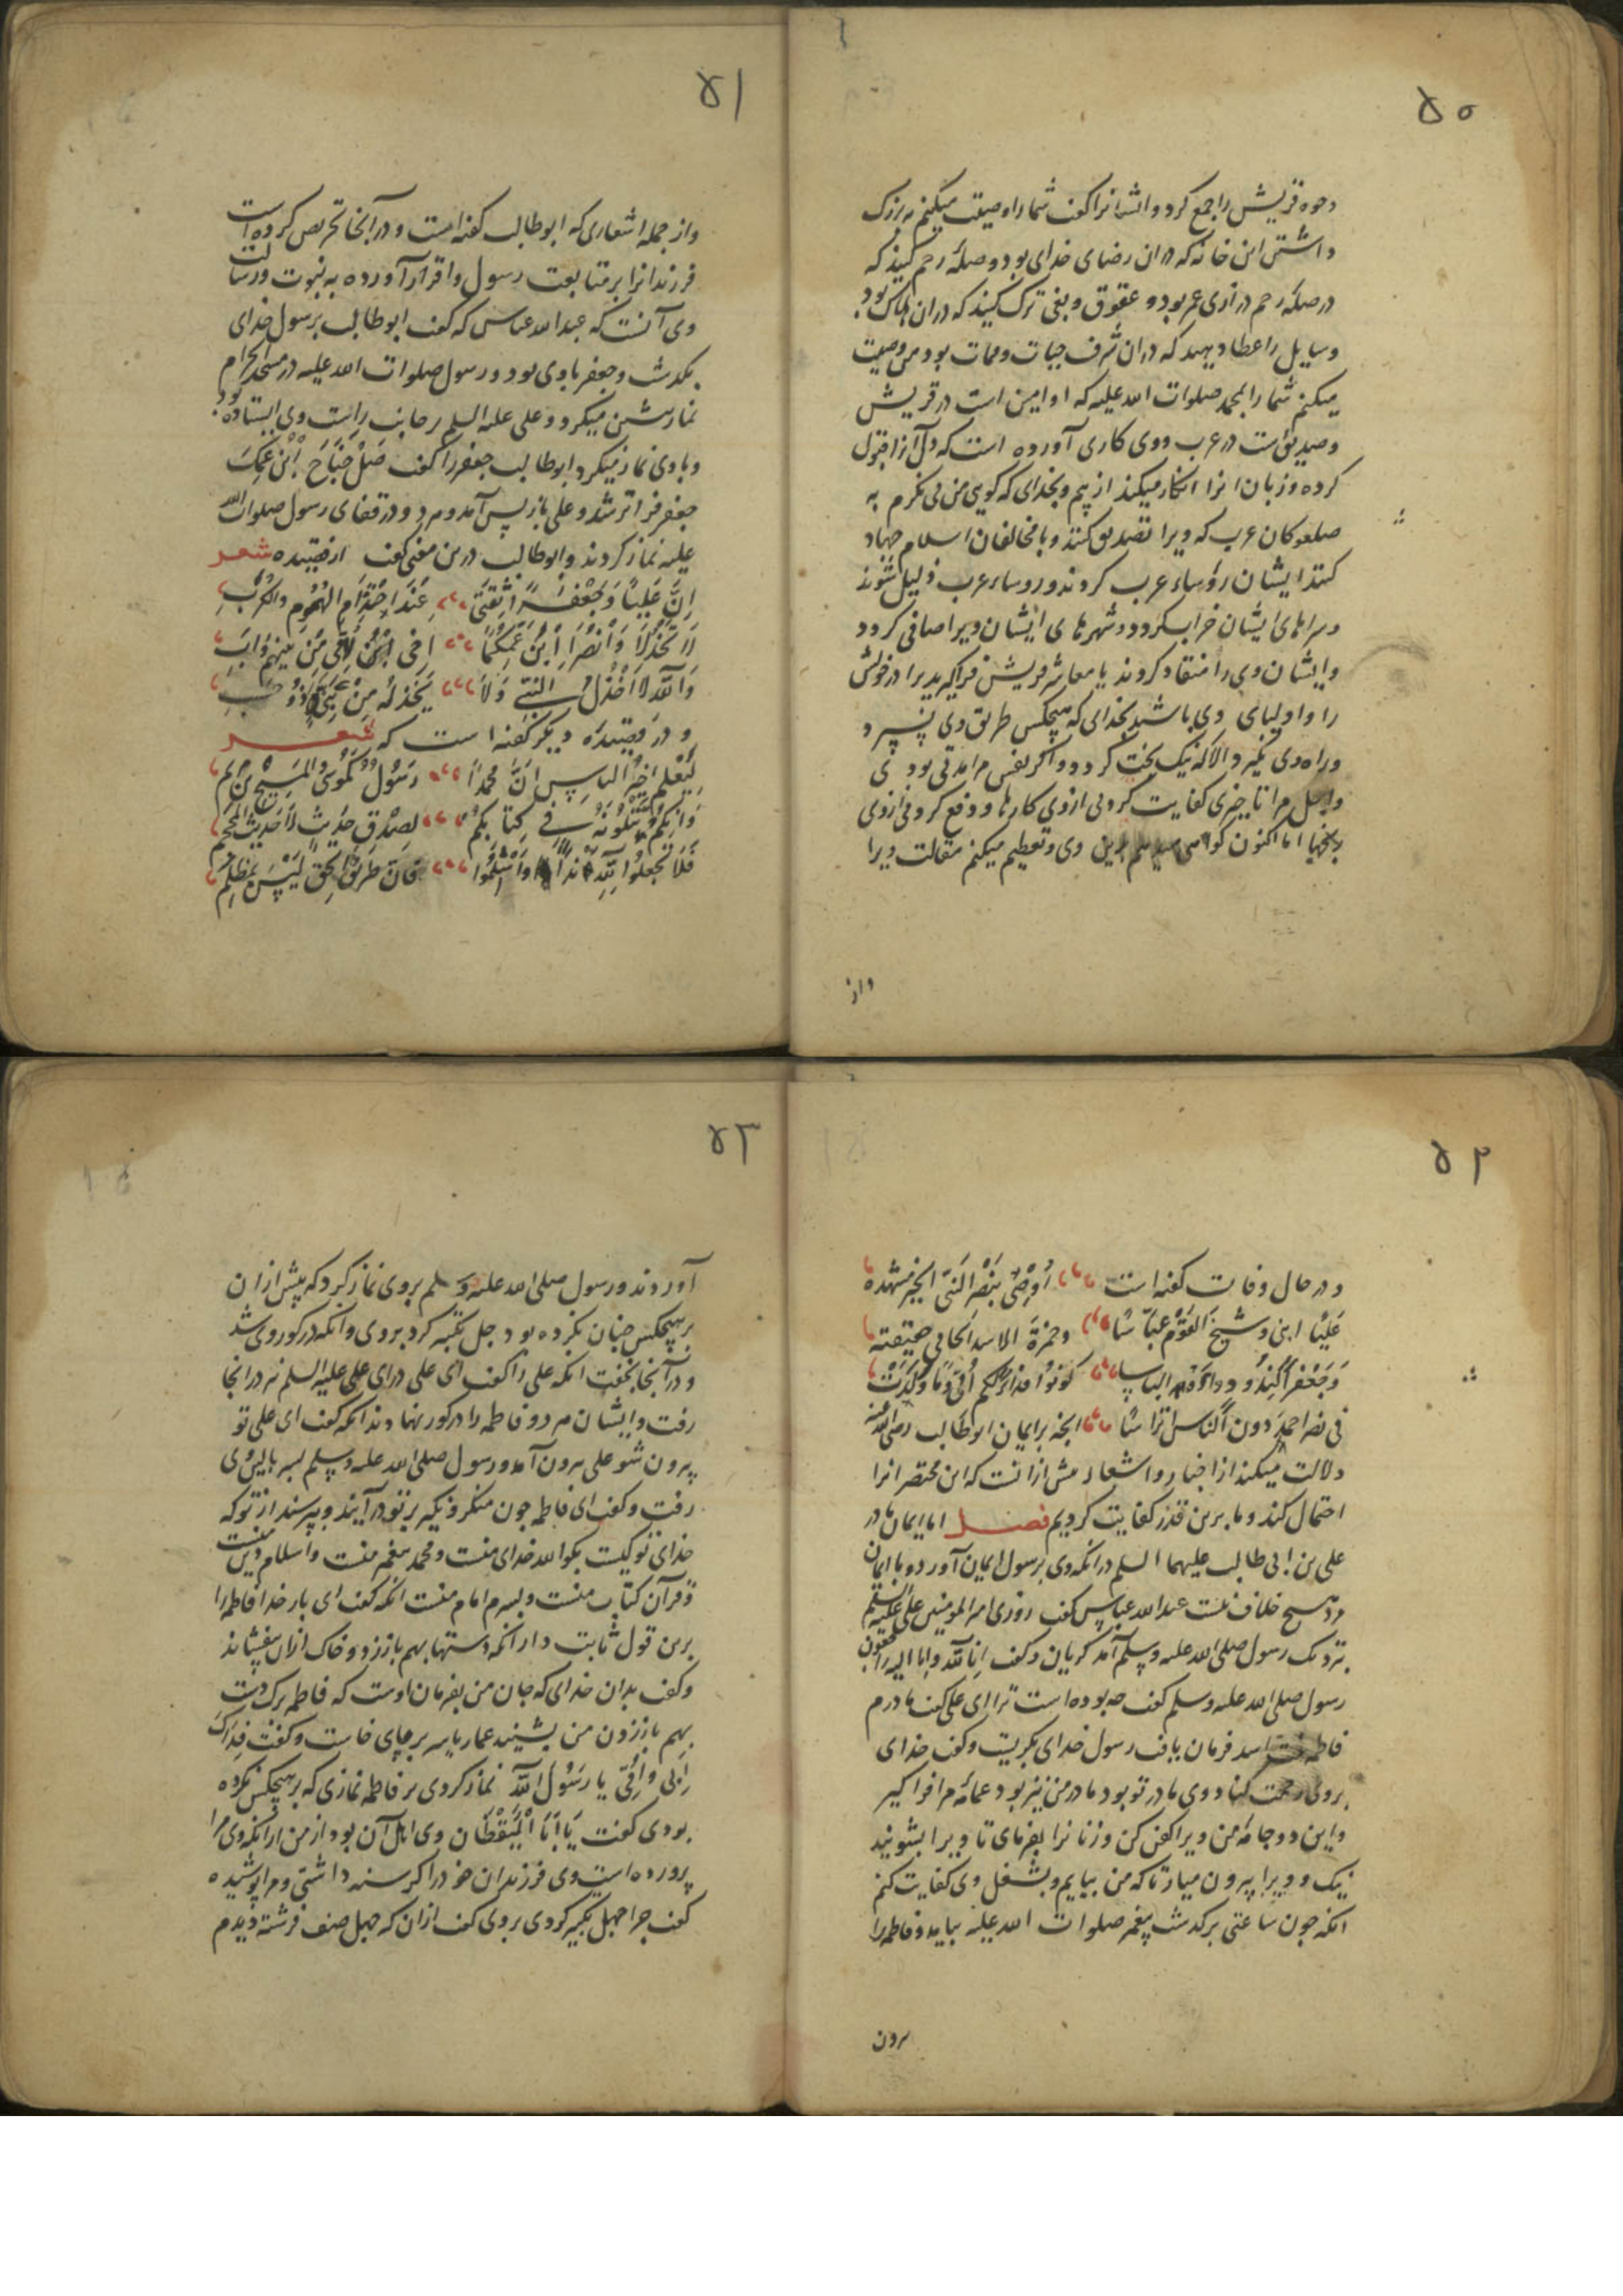 ۵۰
وجوه قریش را جمع کرد و ایشانرا کفت شما را وصیت میکنم به بزرک
داشتن این خانه که در ان رضای خدای بود و صلهٔ رحم کنید که
در صلهٔ رحم درازی عمر بود و عقوق و بغی ترک کنید که در ان هلاک بود
و سایل را عطا دهید که در ان شرف حیات و ممات بود من وصیت
میکنم شما را بمحمد صلوات الله علیه که او امین است در قریش
و صدیق است در عرب و وی کاری آورده است که دل آنرا قبول
کرده و زبان انرا انکار میکند از بیم و بخدای که کویی من می نکرم به
صلعوکان عرب که ویرا تصدیق کنند و با مخالفان اسلام جهاد
کنند ایشان رؤساء عرب کردند و روساء عرب ذلیل شوند
و سراهای ایشان خراب کردد و شهرهای ایشان ویرا صافی کردد
و ایشان وی را منقاد کردند یا معاشر قریش فراکیرید برادر خویش
را و اولیای وی باشید بخدای که هیچکس طریق وی نسپرد
و راه وی نکیرد الا که نیک بخت کردد و اکر نفس مرا مدتی بودی
و اجل مرا تاخیری کفایت کردمی ازوی کارها و دفع کردمی ازوی
رنجها اما اکنون کواهی میدهم بدین وی و تعظیم میکنم مقالت ویرا
واز
۵۱
واز جمله اشعاری که ابوطالب کفته است و در آنجا تحریص کرده است
فرزندانرا بر متابعت رسول و اقرار آورده به نبوت و رسالت
وی آنست که عبدالله عباس که کفت ابوطالب برسول خدای
بکذشت و جعفر با وی بود و رسول صلوات الله علیه در مسجدالحرام
نماز پیشین میکرد و علی علیه السلم بر جانب راست وی ایستاده بود
و با وی نماز میکرد ابوطالب جعفر را کفت صَلْ جَنَاحَ ابْنَ عَمِّکَ
جعفر فراتر شد و علی باز پس آمد و هر دو در قفای رسول صلوات الله
علیه نماز کردند و ابوطالب درین معنی کفت از قصیده شعر
اِنَّ عَلِیّاً وَ جَعْفَراً ثِقَتی عِنْدَ احْتِدَامِ الهُمُومِ وَالکُرَبِ
لَا تَخْذُلَا وَانْصُرَا ابْنَ عَمِّکُمَا اخی ابْنَ اُمّی مِنْ بَیْنِهِمْ وَابِی
وَاللّٰهِ لَا اَخْذُلُ النَّبِیَّ وَلَا یَخْذُلُهُ مِنْ بَنِیَّ ذُو حَسَبِ
و در قصیدهٔ دیکر کفته است که شعر
لِیَعْلَمْ خِیَارُ النَّاسِ اَنَّ مُحَمَّداً رَسُولٌ کَمُوسی وَالمَسِیحِ بْنِ مَرْیَمَ
وَانَّکُمْ تَتْلُونَهُ فی کِتَابِکُمْ بِصِدْقِ حَدِیثٍ لَا حَدِیثِ المُرَجَّمِ
فَلَا تَجْعَلُوا لِلّٰهِ نِدّاً وَاَسْلِمُوا فَاِنَّ طَرِیقَ الحَقِّ لَیْسَ بِمُظْلِمِ
۵۲
و در حال وفات کفته است اُوصِی بِنَصْرِ النَّبِیِّ الخَیرِ مشهده
عَلِیّا ابنی و شیخَ القَوْمِ عبّاسًا و حمزةَ الاسدَ الحامی حقیقته
وَ جَعْفَراً لِتَذُودُوا دُونَهُ الباسا کونوا فداءً لکم اُمّی وما وَلَدَتْ
فی نصر احمدَ دون النّاس اتراسًا انچه بر ایمان ابوطالب رضی الله عنه
دلالت میکند از اخبار و اشعار بیش ازانست که این مختصر انرا
احتمال کند و ما برین قدر کفایت کردیم فصل اما ایمان مادر
علی بن ابی طالب علیهما السلم در انکه وی برسول ایمان آورد و با ایمان
مرد هیچ خلاف نیست عبدالله عباس کفت روزی امیرالمومنین علی علیه السلم
نزدیک رسول صلی الله علیه وسلم آمد کریان و کفت اِنّا لِلّٰه وانا الیه راجعون
رسول صلی الله علیه وسلم کفت چه بوده است ترا ای علی کفت مادرم
فاطمه بنت اسد فرمان یافت رسول خدای بکریست و کفت خدای
بروی رحمت کناد وی مادر تو بود مادر من نیز بود عمامهٔ مرا فراکیر
و این دو جامهٔ من ویرا کفن کن و زنانرا بفرمای تا ویرا بشویند
نیک و ویرا بیرون میار تا که من بیایم و بشغل وی کفایت کنم
انکه چون ساعتی برکذشت پیغمبر صلوات الله علیه بیامد و فاطمه را
برون
۵۳
آوردند و رسول صلی الله علیه وسلم بروی نماز کرد که پیش ازان
بر هیچکس چنان نکرده بود چهل تکبیر کرد بروی وانکه در کور وی شد
و در آنجا بخفت انکه علی را کفت ای علی درای علی علیه السلم نیز در انجا
رفت و ایشان هر دو فاطمه را در کور نهادند انکه کفت ای علی تو
بیرون شو علی بیرون آمد و رسول صلی الله علیه وسلم بسر بالین وی
رفت و کفت ای فاطمه چون منکر و نکیر بر تو در آیند و بپرسند از تو که
خدای تو کیست بکو الله خدای منست و محمد پیغمبر منست و اسلام دین منست
و قرآن کتاب منست و پسرم امام منست انکه کفت ای بار خدا فاطمه را
برین قول ثابت دار انکه دستها بهم باززد و خاک ازان بیفشاند
و کفت بدان خدای که جان من بفرمان اوست که فاطمه برک دست
بهم باززدن من بشنید عمار یاسر بر جای خاست و کفت فِدَاکَ
اَبی وَاُمّی یا رَسُولَ اللّٰه نماز کردی بر فاطمه نمازی که بر هیچکس نکرده
بودی کفت یَا اَبَا الْیَقْظَان وی اهل آن بود از من ازانکه وی مرا
پرورده است وی فرزندان خود را کرسنه داشتی و مرا پوشیده
کفت چرا چهل تکبیر کردی بروی کفت ازان که چهل صنف فرشته دیدم